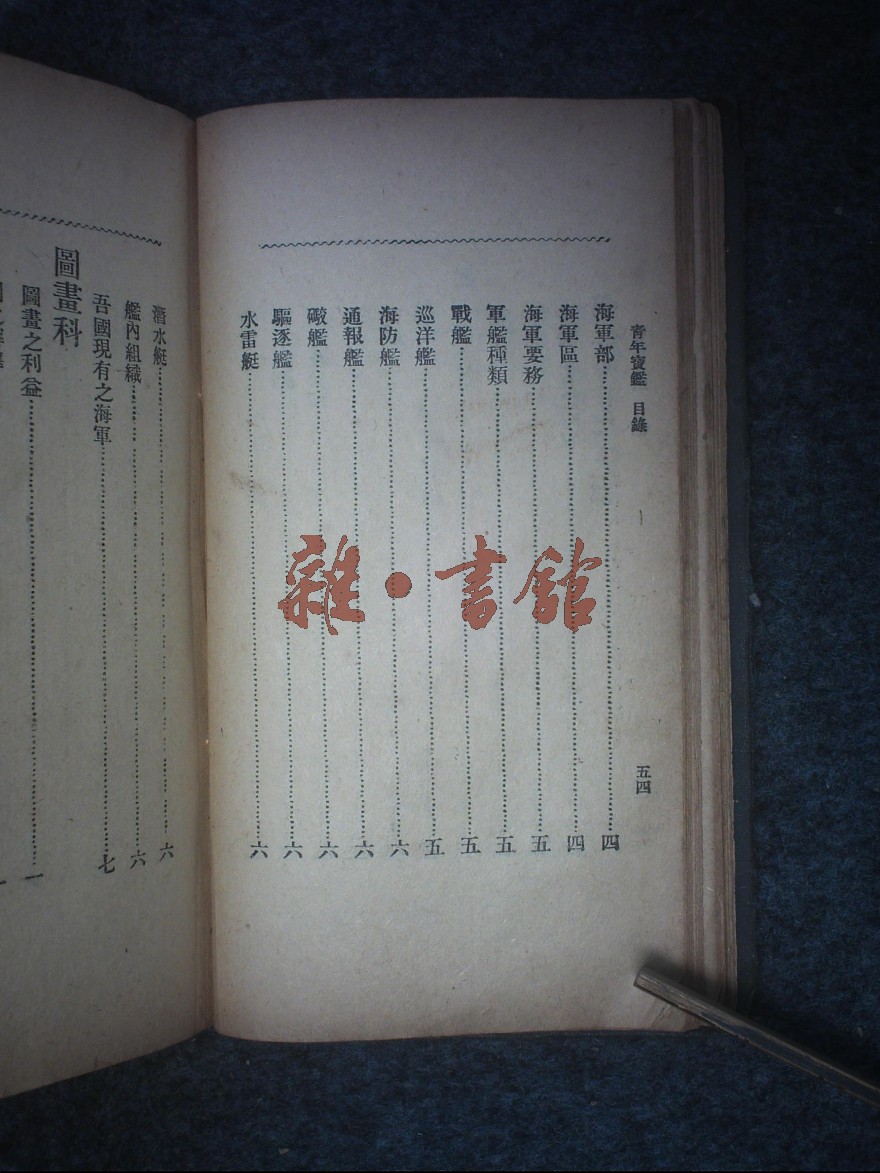 青年寶鑑 目錄 五四
海軍部 四
海軍區 四
海軍要務 五
軍艦種類 五
戰艦 五
巡洋艦 五
海防艦 六
通報艦 六
礮艦 六
驅逐艦 六
水雷艇 六
潛水艇 六
艦內組織 六
吾國現有之海軍 七
圖畫科
圖畫之利益 一
雜·書館